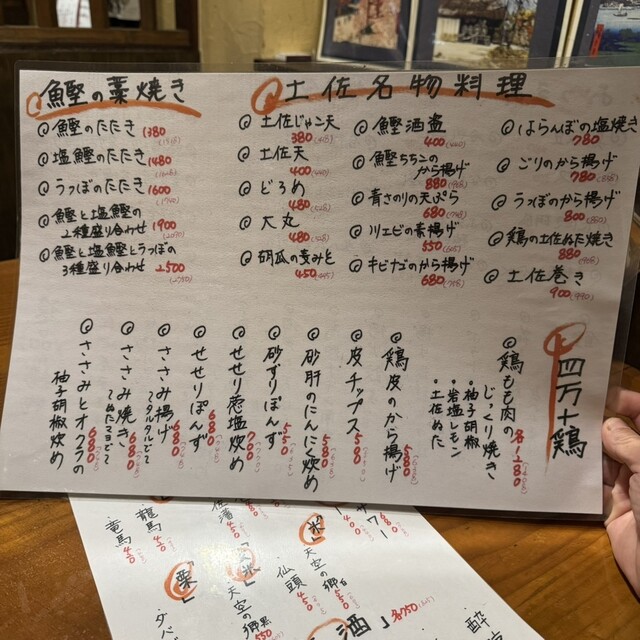 鰹の藁焼き
鰹のたたき 1380
塩鰹のたたき 1480
うつぼのたたき 1600
鰹と塩鰹の
2種盛り合わせ 1900
鰹と塩鰹とうつぼの
3種盛り合わせ 2500
土佐名物料理
土佐じゃこ天
380
土佐天
400
どろめ
480
大丸
480
胡瓜の麦みそ
450
鰹酒盗
400
鰹ちちこの
から揚げ
880
青さのりの天ぷら
680
川エビの素揚げ
550
キビナゴのから揚げ
680
はらんぼの塩焼き
780
ごりのから揚げ
780
うつぼのから揚げ
800
鶏の土佐ぬた焼き
880
土佐巻き
900(990)
四万十鶏
鶏もも肉の
じっくり焼き
各1180
・柚子胡椒
・岩塩レモン
・土佐ぬた
鶏皮のから揚げ 580
皮チップス 580
砂肝のにんにく炒め 580
砂ずりぽんず 550
せせり葱塩炒め 700
せせりぽんず 680
ささみ揚げ 680
〜タルタルで〜
ささみ焼き 680
〜ぬたマヨで〜
ささみとオクラの
柚子胡椒炒め 680
龍馬 450
竜馬
「栗」
「米」
天空の郷
仙頭 450
酒」各750
酔